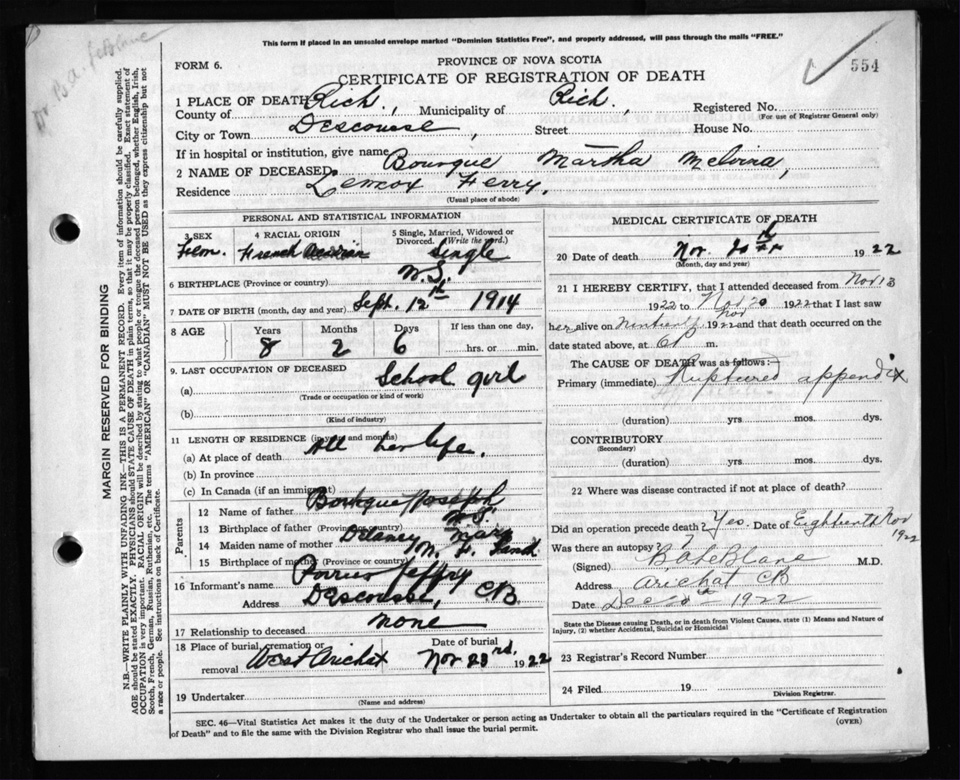 This form if placed in an unsealed envelope marked "Dominion Statistics Free", and properly addressed, will pass through the mails "FREE."
FORM 6.
PROVINCE OF NOVA SCOTIA
CERTIFICATE OF REGISTRATION OF DEATH
554
1 PLACE OF DEATH
County of Rich., Municipality of Rich., Registered No.
(For use of Registrar General only)
City or Town Descousse, Street House No.
If in hospital or institution, give name
2 NAME OF DECEASED. Bourque Martha Melvina,
Residence Lennox Ferry.
(Usual place of abode)
PERSONAL AND STATISTICAL INFORMATION
3 SEX Fem.
4 RACIAL ORIGIN French Acadian
5 Single, Married, Widowed or Divorced. (Write the word.) Single
6 BIRTHPLACE (Province or country) N.S.
7 DATE OF BIRTH (month, day and year) Sept. 12th 1914
8 AGE Years Months Days If less than one day,
8 2 6 hrs. or min.
9. LAST OCCUPATION OF DECEASED
(a) School girl
(Trade or occupation or kind of work)
(b)
(Kind of industry)
11 LENGTH OF RESIDENCE (in years and months)
(a) At place of death All her life.
(b) In province
(c) In Canada (if an immigrant)
Parents
12 Name of father Bourque Joseph
13 Birthplace of father (Province or country) N.S.
14 Maiden name of mother Delaney Mary
15 Birthplace of mother (Province or country) N.F. Land
16 Informant's name Jeffry
Address Descousse, CB
17 Relationship to deceased none
18 Place of burial, cremation or removal West Arichat
Date of burial Nov 23rd, 1922
19 Undertaker
(Name and address)
MEDICAL CERTIFICATE OF DEATH
20 Date of death Nov. 20th 1922
(Month, day and year)
21 I HEREBY CERTIFY, that I attended deceased from Nov 13
1922 to Nov 20 1922 that I last saw
her alive on Nov 1922 and that death occurred on
date stated above, at m.
The CAUSE OF DEATH was as follows:
Primary (immediate) Ruptured appendix
(duration) yrs. mos. dys.
CONTRIBUTORY
(Secondary)
(duration) yrs. mos. dys.
22 Where was disease contracted if not at place of death?
Did an operation precede death? Yes. Date of Eighteenth Nov 1922
Was there an autopsy? ?
(Signed) B A LeBlanc M.D.
Address Arichat CB
Date Dec 1922
State the Disease causing Death, or in death from Violent Causes, state (1) Means and Nature of
Injury, (2) whether Accidental, Suicidal or Homicidal
23 Registrar's Record Number
24 Filed 19
Division Registrar.
SEC. 46—Vital Statistics Act makes it the duty of the Undertaker or person acting as Undertaker to obtain all the particulars required in the "Certificate of Registration
of Death" and to file the same with the Division Registrar who shall issue the burial permit.
(OVER)
Dr B.A. LeBlanc
MARGIN RESERVED FOR BINDING
N.B.—WRITE PLAINLY WITH UNFADING INK—THIS IS A PERMANENT RECORD. Every item of information should be carefully supplied.
AGE should be stated EXACTLY. PHYSICIANS should STATE CAUSE OF DEATH in plain terms, so that it may be properly classified. Exact statement of
OCCUPATION is very important. RACIAL ORIGIN will be described by stating to what people or tongue the deceased person belonged, whether English, Irish,
Scotch, French, German, Russian, Ruthenian, etc. The terms "AMERICAN" OR "CANADIAN" MUST NOT BE USED as they express citizenship but not
a race or people. See instructions on back of Certificate.